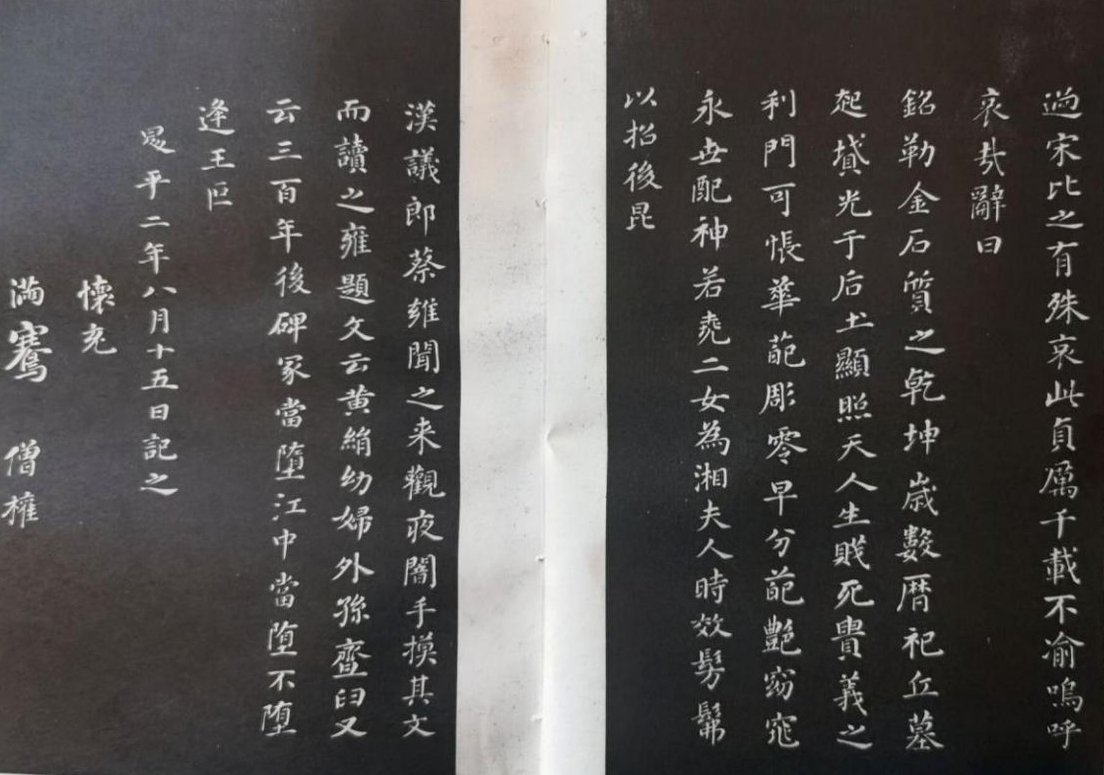 過宋比之有殊哀此貞厲千載不渝嗚呼
哀哉辭曰
銘勒金石質之乾坤歲數曆祀丘墓
起墳光于后土顯照天人生賤死貴義之
利門可悵華葩彫零早分葩艷窈窕
永世配神若堯二女為湘夫人時效髣髴
以招後昆
漢議郎蔡雍聞之来觀夜闇手摸其文
而讀之雍題文云黄絹幼婦外孫韲臼又
云三百年後碑冢當墮江中當墮不墮
逢王叵
昪平二年八月十五日記之
懷充
滿騫 僧權